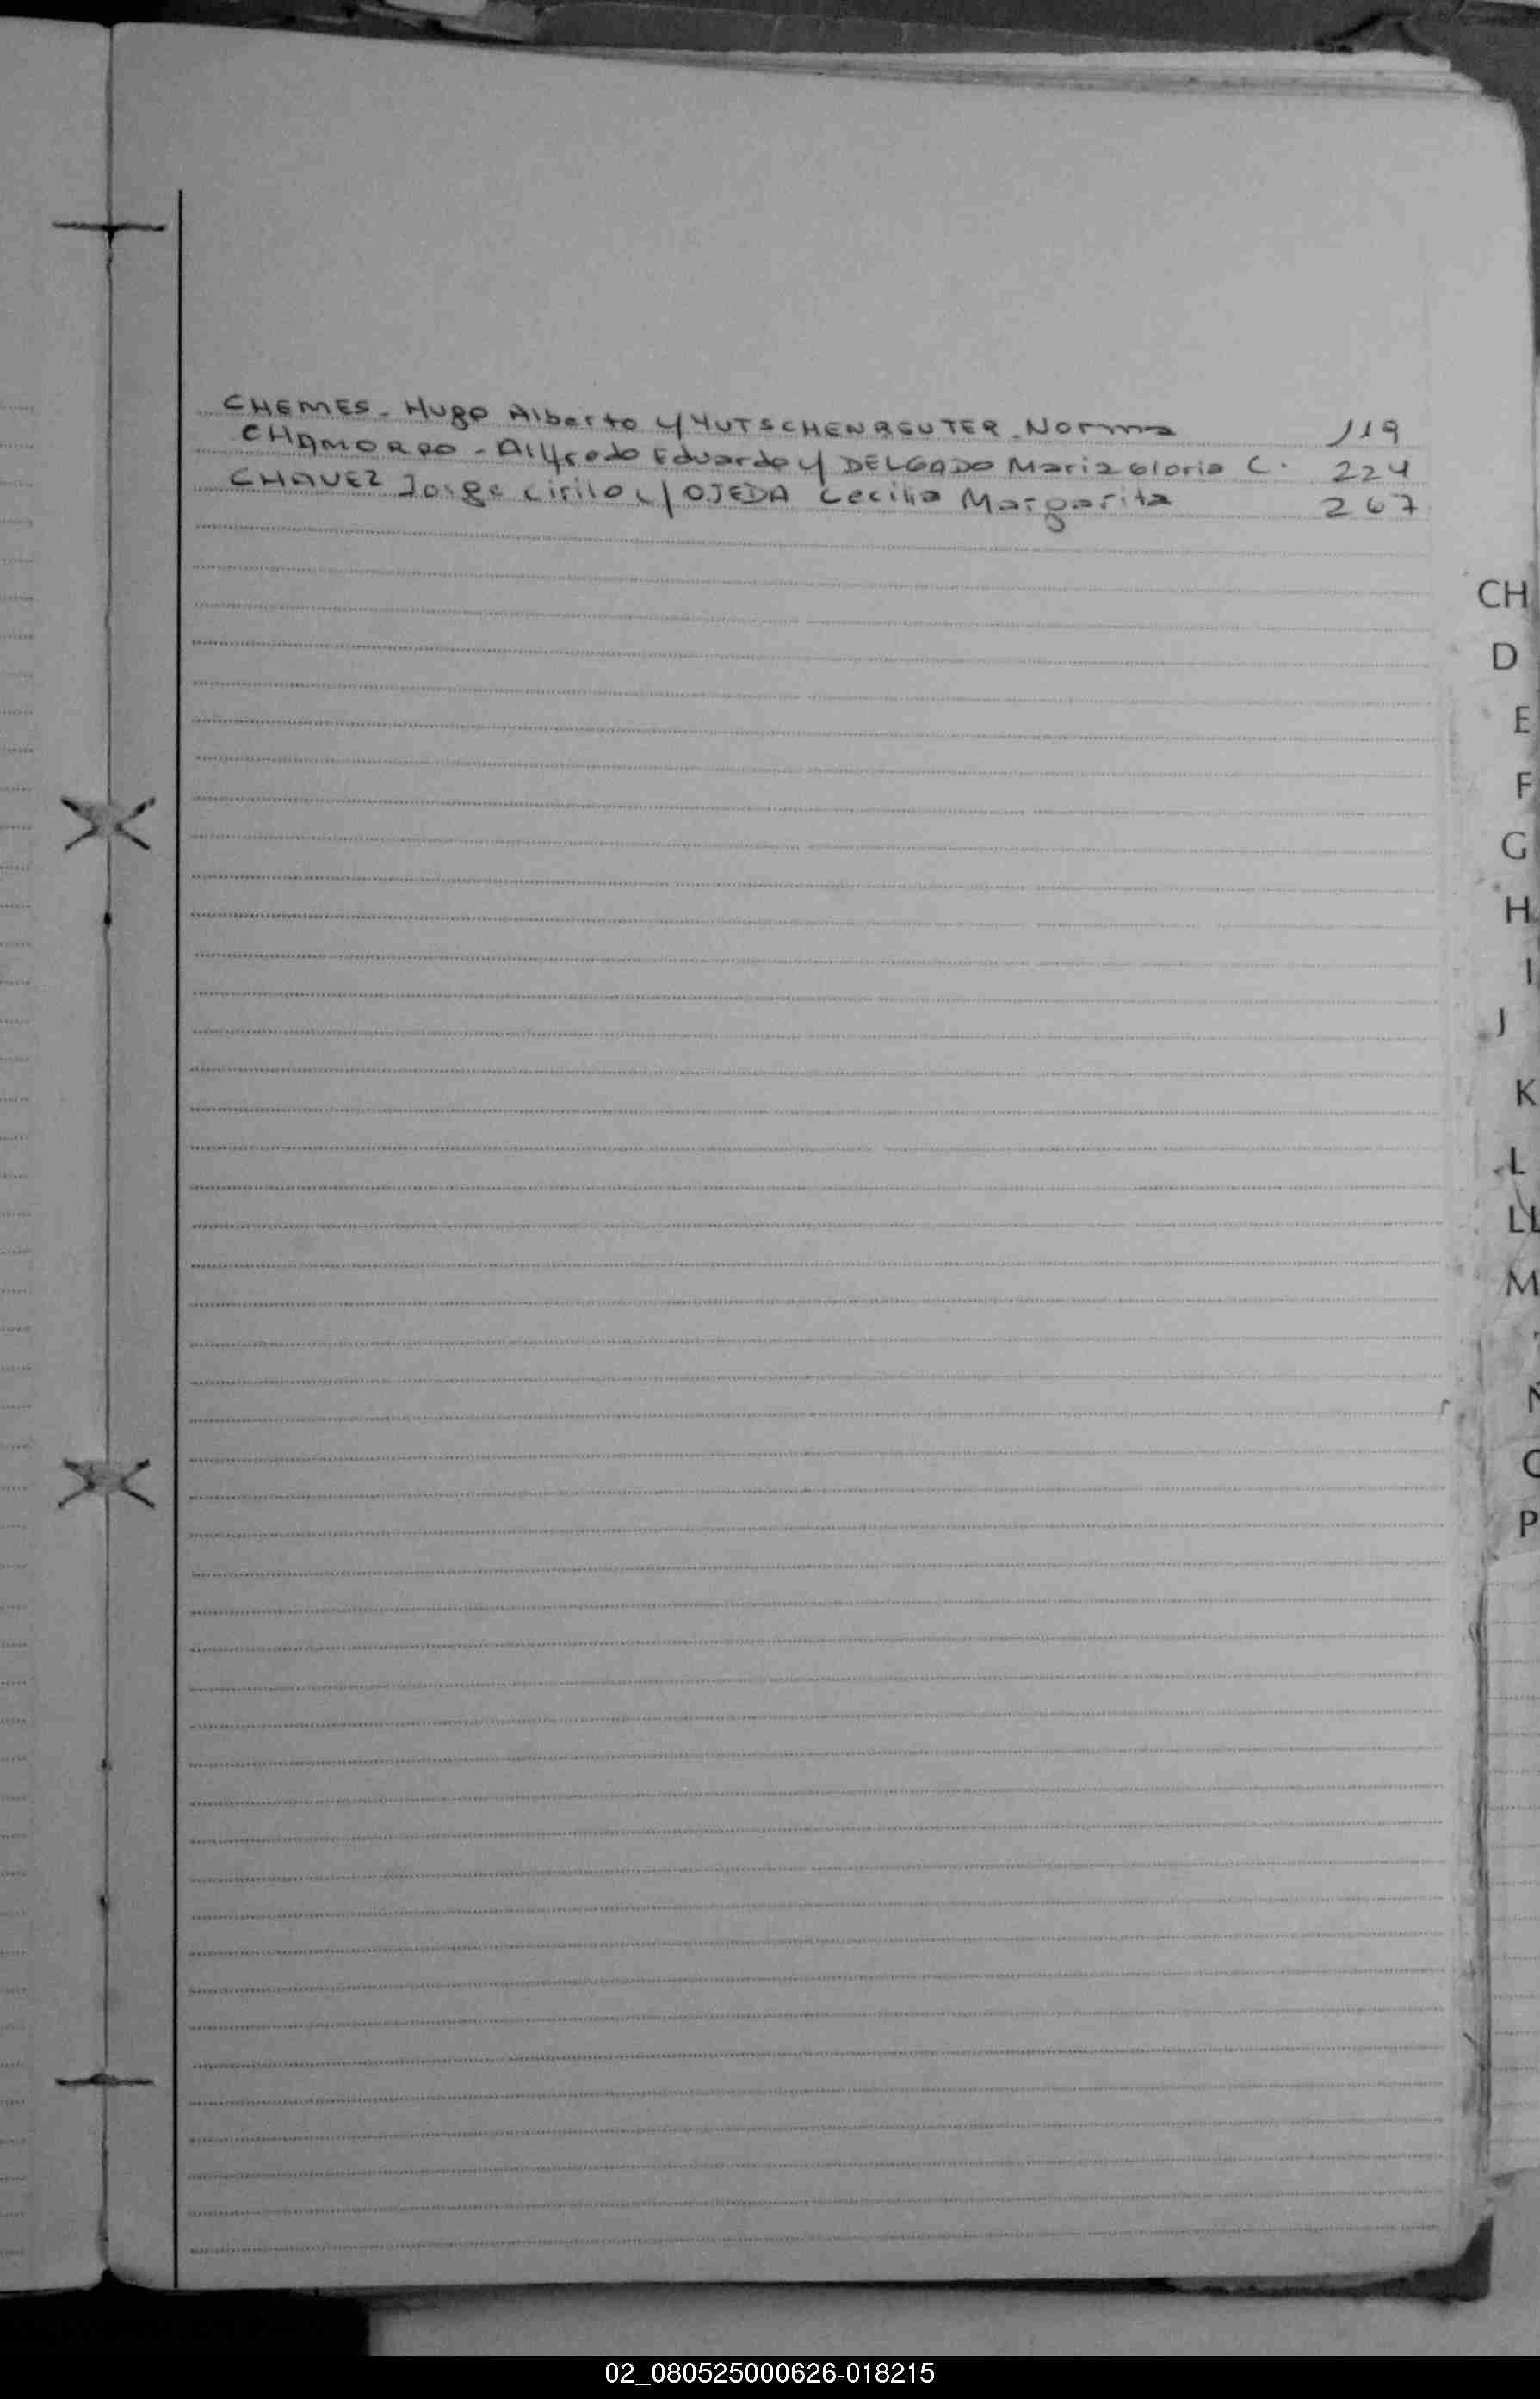 CHEMES - Hugo Alberto y YUTSCHENREUTER - Norma 119
CHAMORRO - Alfredo Eduardo y DELGADO Maria Gloria C. 224
CHAVEZ Jorge Cirilo y OJEDA Cecilia Margarita 267
CH
D
E
F
G
H
I
J
K
L
LL
M
N
O
P
02_080525000626-018215